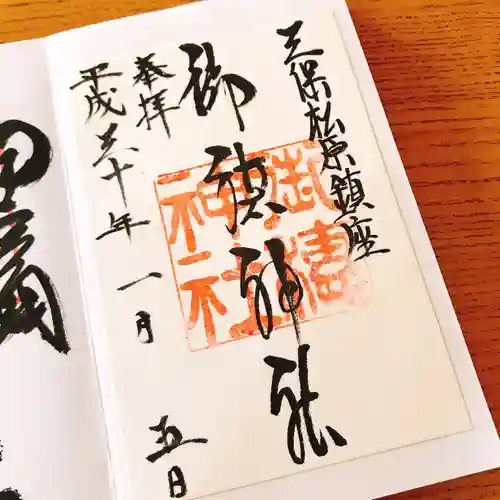 三保松原鎮座
御穂神社
奉拝
平成三十年一月五日